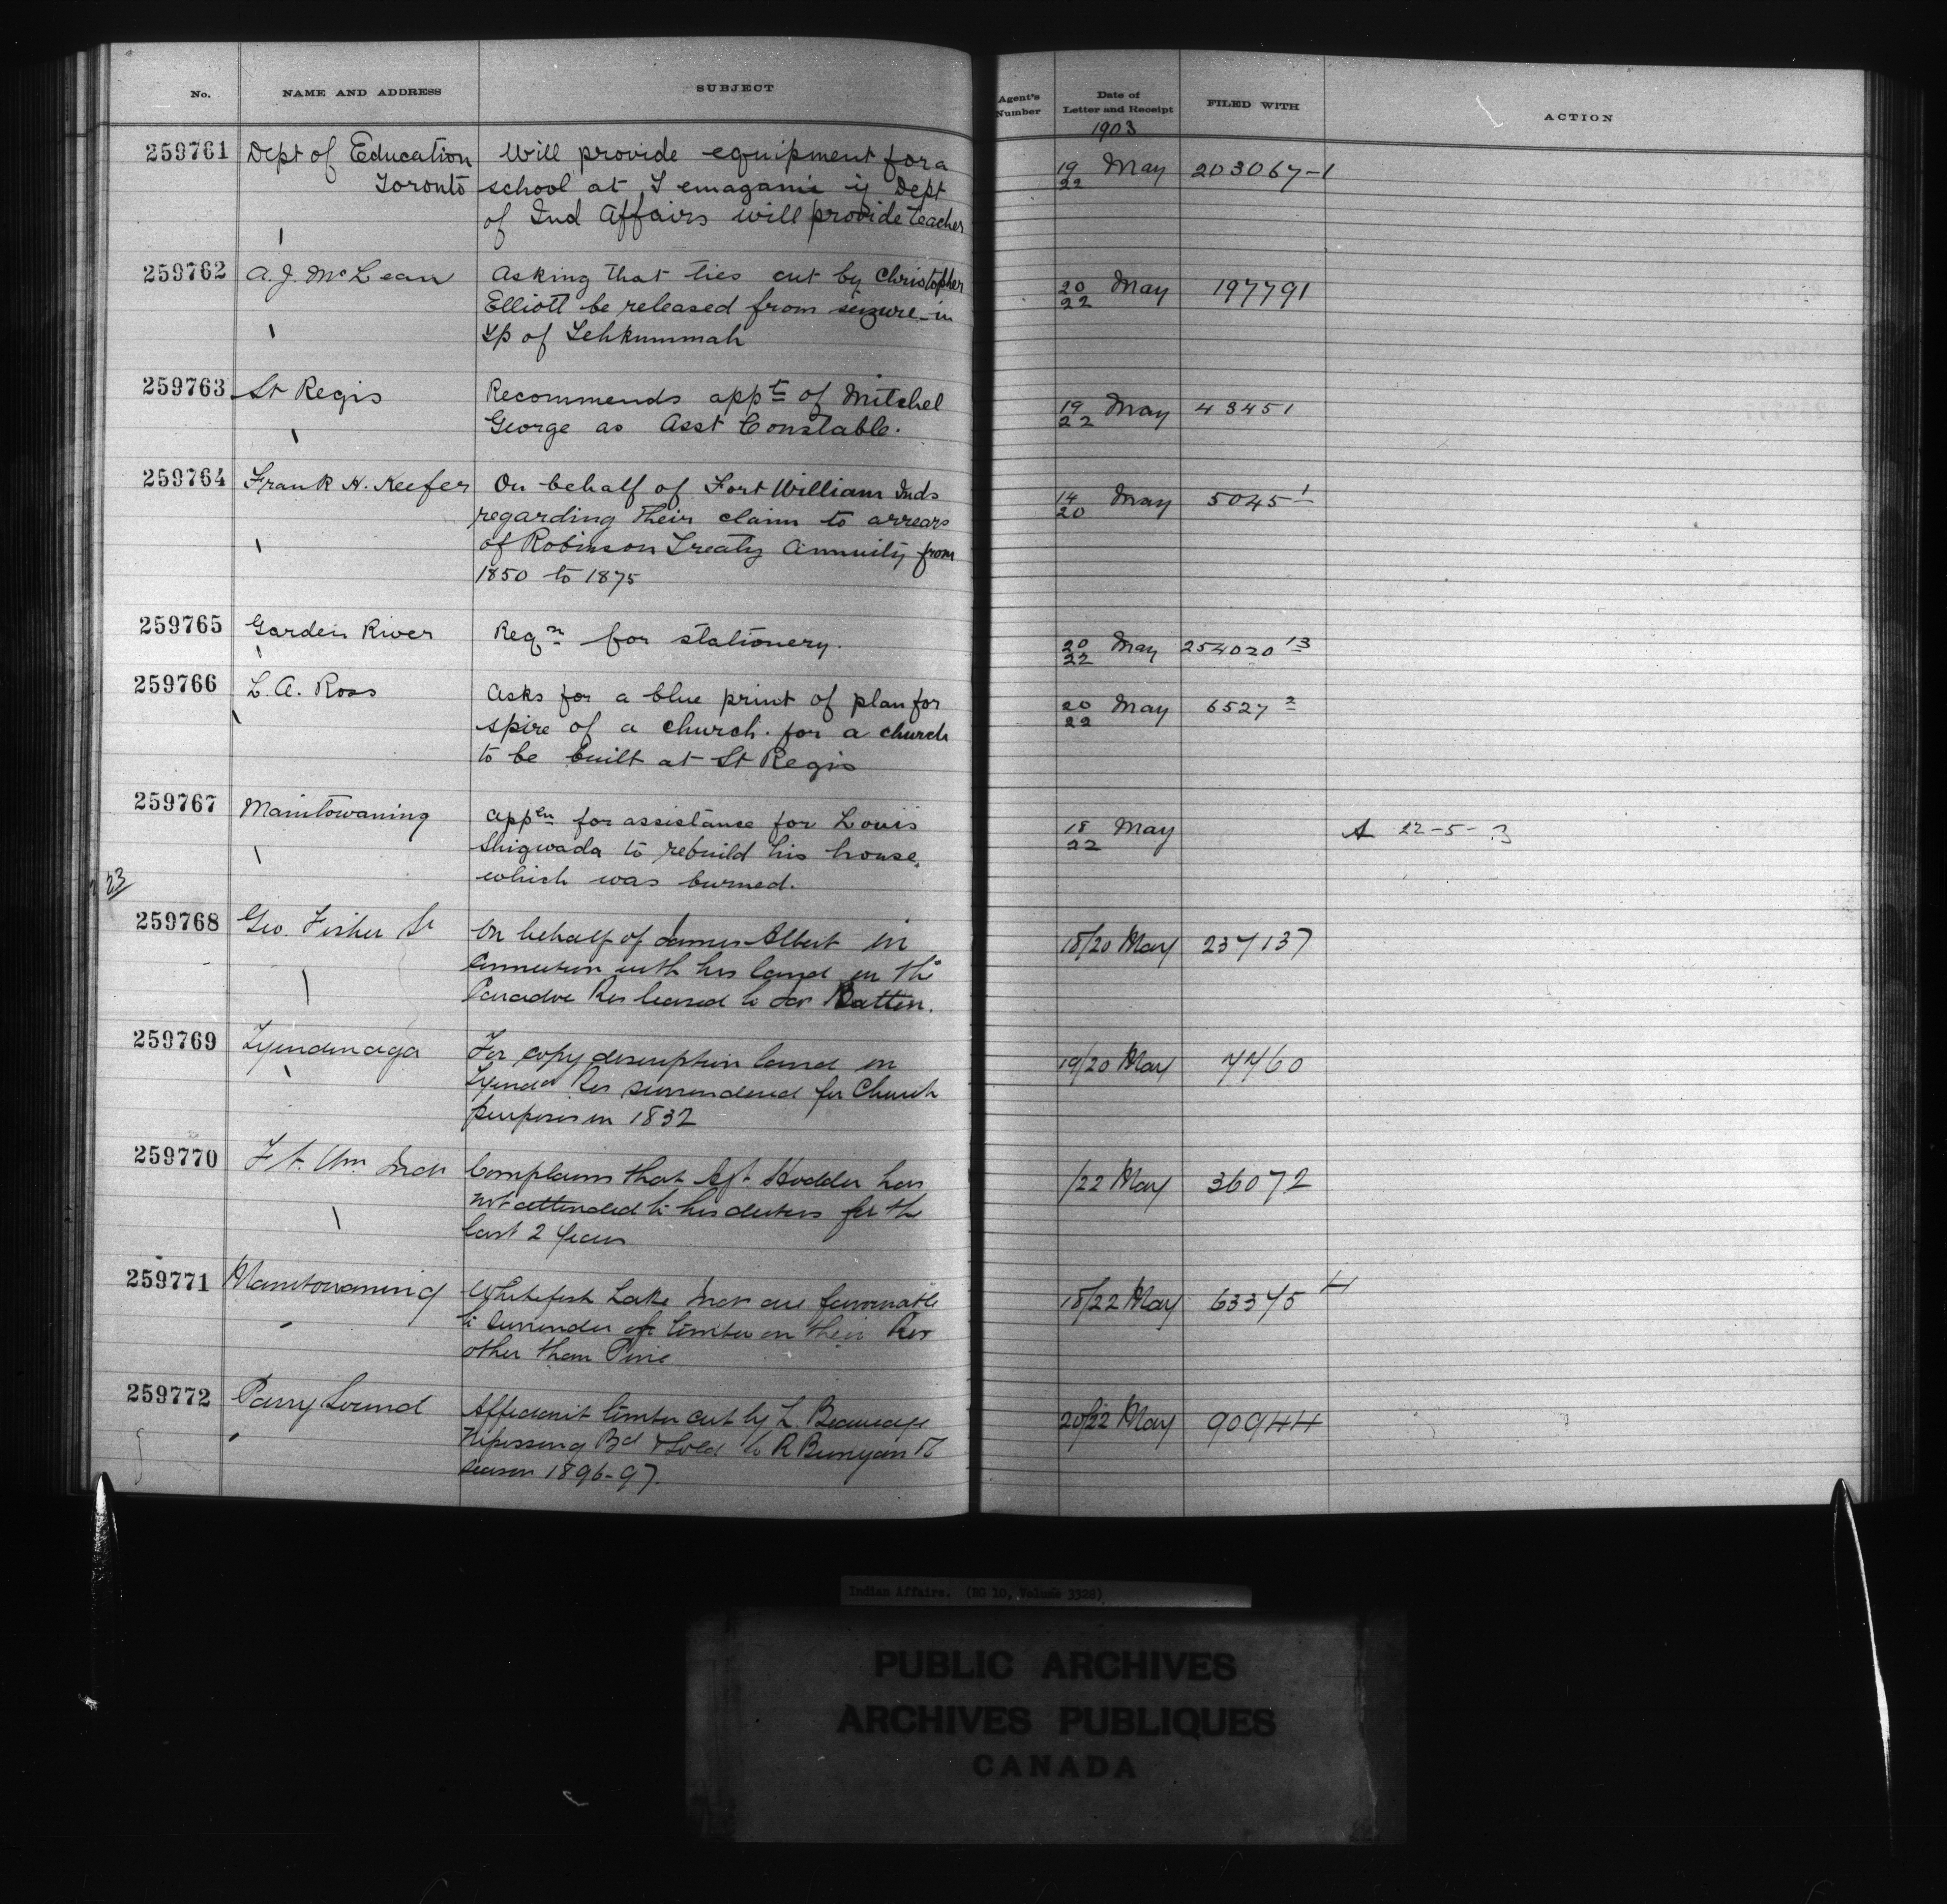 No. NAME AND ADDRESS SUBJECT Agent's Number Date of Letter and Receipt FILED WITH ACTION
1903
259761 Dept of Education Will provide equipment for a 19/22 May 203067-1
Toronto school at Temagami if Dept
of Ind Affairs will provide teacher
259762 A. J. McLean Asking that ties cut by Christopher 20/22 May 197791
Elliott be released from seizure in
Tp of Tehkummah
259763 St Regis Recommends appt of Mitchel 19/22 May 43451
George as Asst Constable.
259764 Frank H. Keefer On behalf of Fort William Inds 14/20 May 5045 1
regarding their claim to arrears
of Robinson Treaty Annuity from
1850 to 1875
259765 Garden River Reqn for stationery. 20/22 May 254020 13
259766 L. A. Ross Asks for a blue print of plan for 20/22 May 6527 2
spire of a church for a church
to be built at St Regis
259767 Manitowaning Appln for assistance for Louis 18/22 May A 22-5-3
Shigwada to rebuild his house,
which was burned.
23
259768 Geo. Fisher Sr On behalf of James Albert in 18/20 May 237137
connection with his land in the
Caradoc Res leased to Batten.
259769 Tyendinaga For copy description land in 19/20 May 7460
Tyenda Res surrendered for Church
purposes in 1832
259770 Ft. Wm Inds Complains that Agt Hodder has /22 May 36072
not attended to his duties for the
last 2 years
259771 Manitowaning Whitefish Lake Inds are favourable 18/22 May 63375 4
to surrender of timber on their Res
other than Pine
259772 Parry Sound Affidavit timber cut by L Beaucage 20/22 May 90944
Nipissing Bd & sold to R Bunyan
season 1896-97.
Indian Affairs. (RG 10, Volume 3328)
PUBLIC ARCHIVES
ARCHIVES PUBLIQUES
CANADA